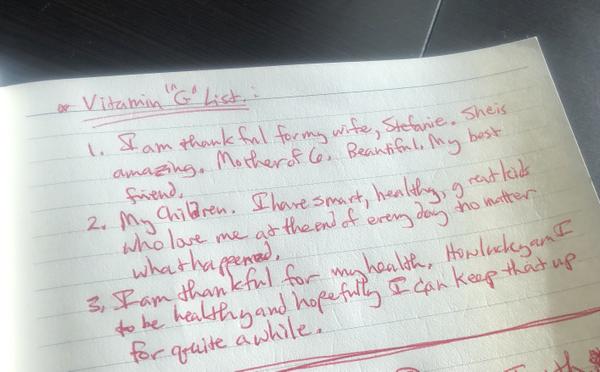 Vitamin "G" List:
1. I am thankful for my wife, Stefanie. She is
amazing. Mother of 6. Beautiful. My best
friend.
2. My Children. I have smart, healthy, great kids
who love me at the end of every day no matter
what happened.
3. I am thankful for my health. How lucky am I
to be healthy and hopefully I can keep that up
for quite a while.